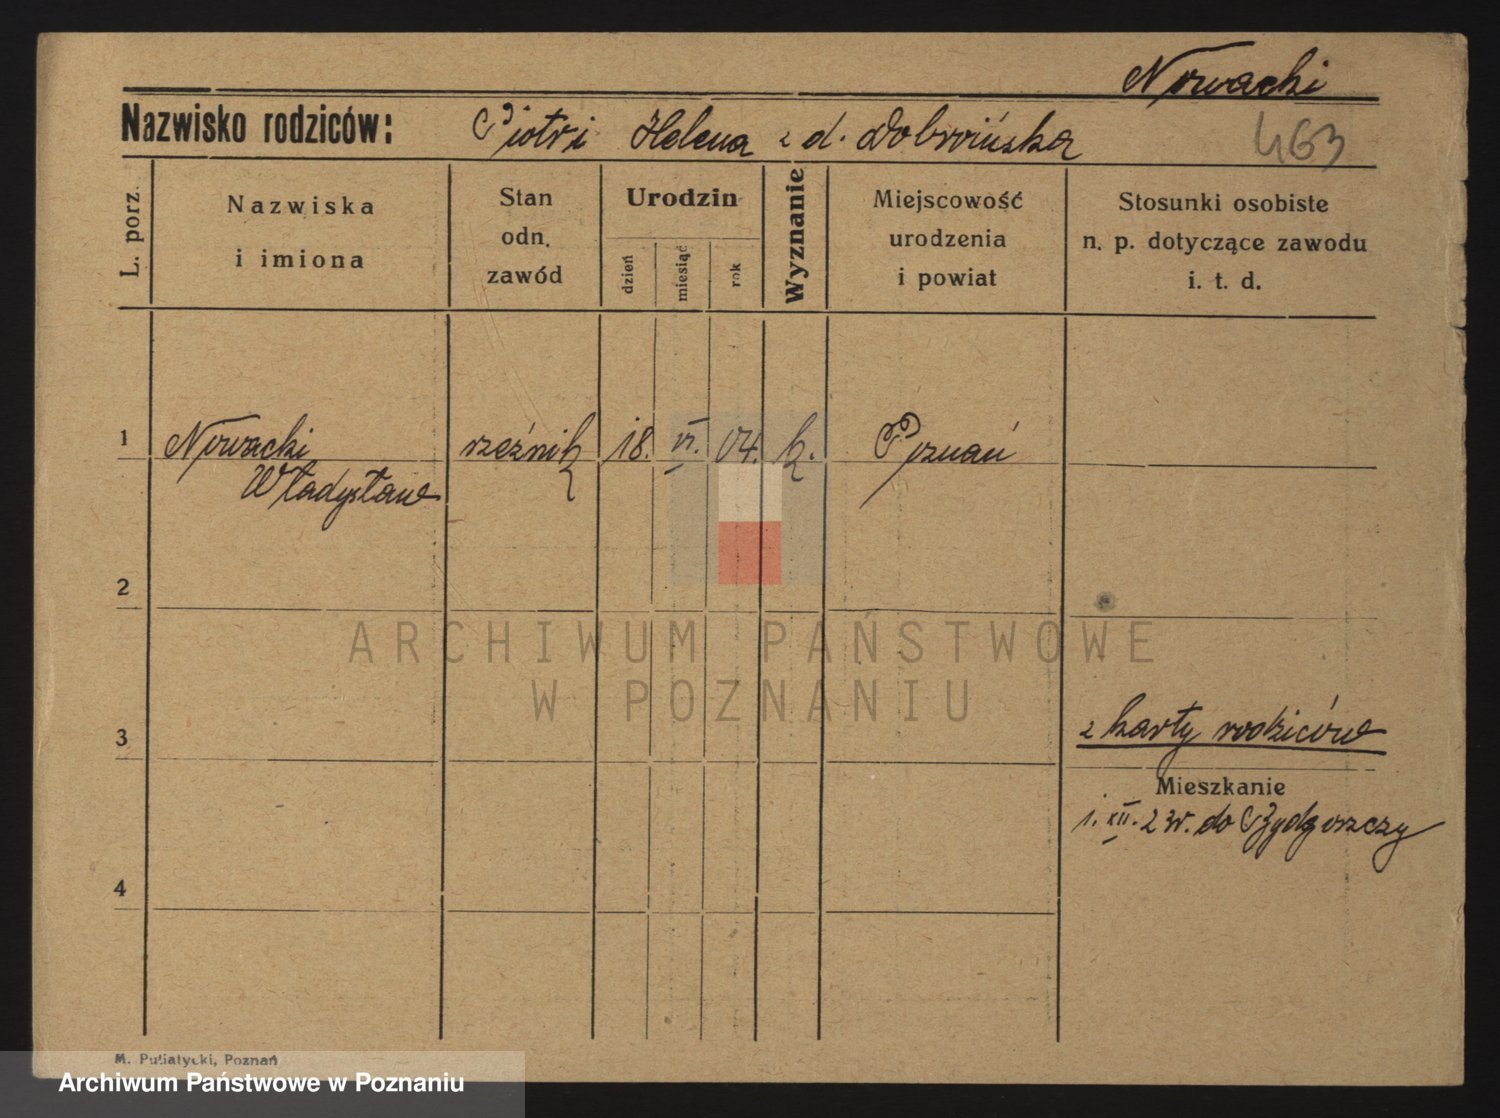 Nowacki
Nazwisko rodziców: Piotr i Helena z d. Dobroińska
463
L. porz.
Nazwiska
i imiona
Stan
odn.
zawód
Urodzin
dzień
miesiąc
rok
Wyznanie
Miejscowość
urodzenia
i powiat
Stosunki osobiste
n. p. dotyczące zawodu
i. t. d.
1 Nowacki rzeźnik 18. VI. 04. k. Poznań
Władysław
2
ARCHIWUM PAŃSTWOWE
W POZNANIU
3
z karty rodziców
Mieszkanie
1. XII. 23 r. do Bydgoszczy
4
M. Putiatycki, Poznań
Archiwum Państwowe w Poznaniu